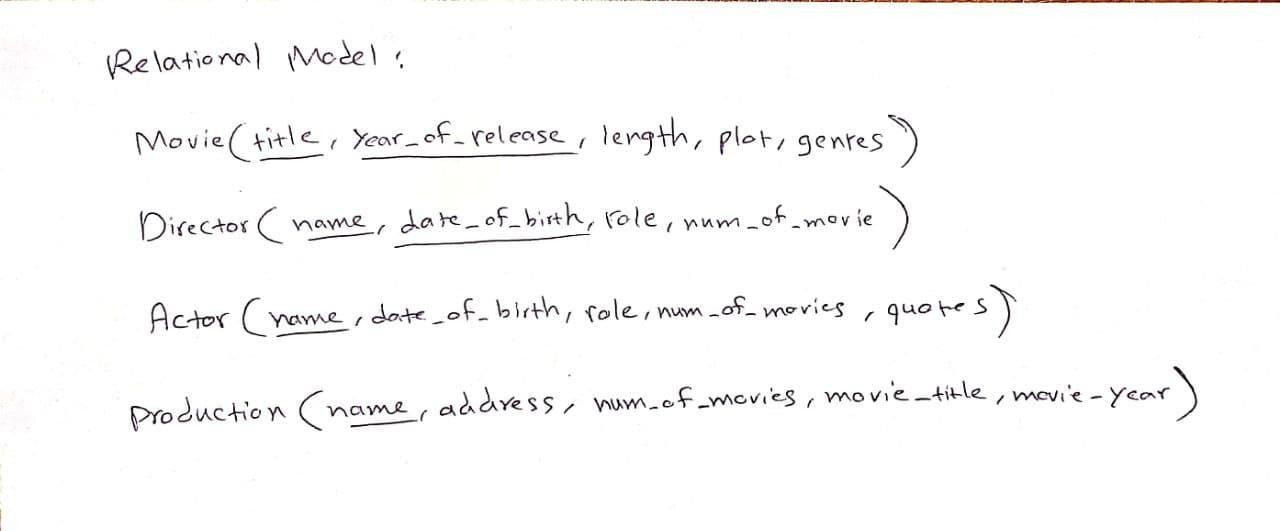 Relational Model :
Movie ( title, year_of_release, length, plot, genres )
Director ( name, date_of_birth, role, num_of_movie )
Actor ( name, date_of_birth, role, num_of_movies, quotes )
production ( name, address, num_of_movies, movie_title, movie-year )